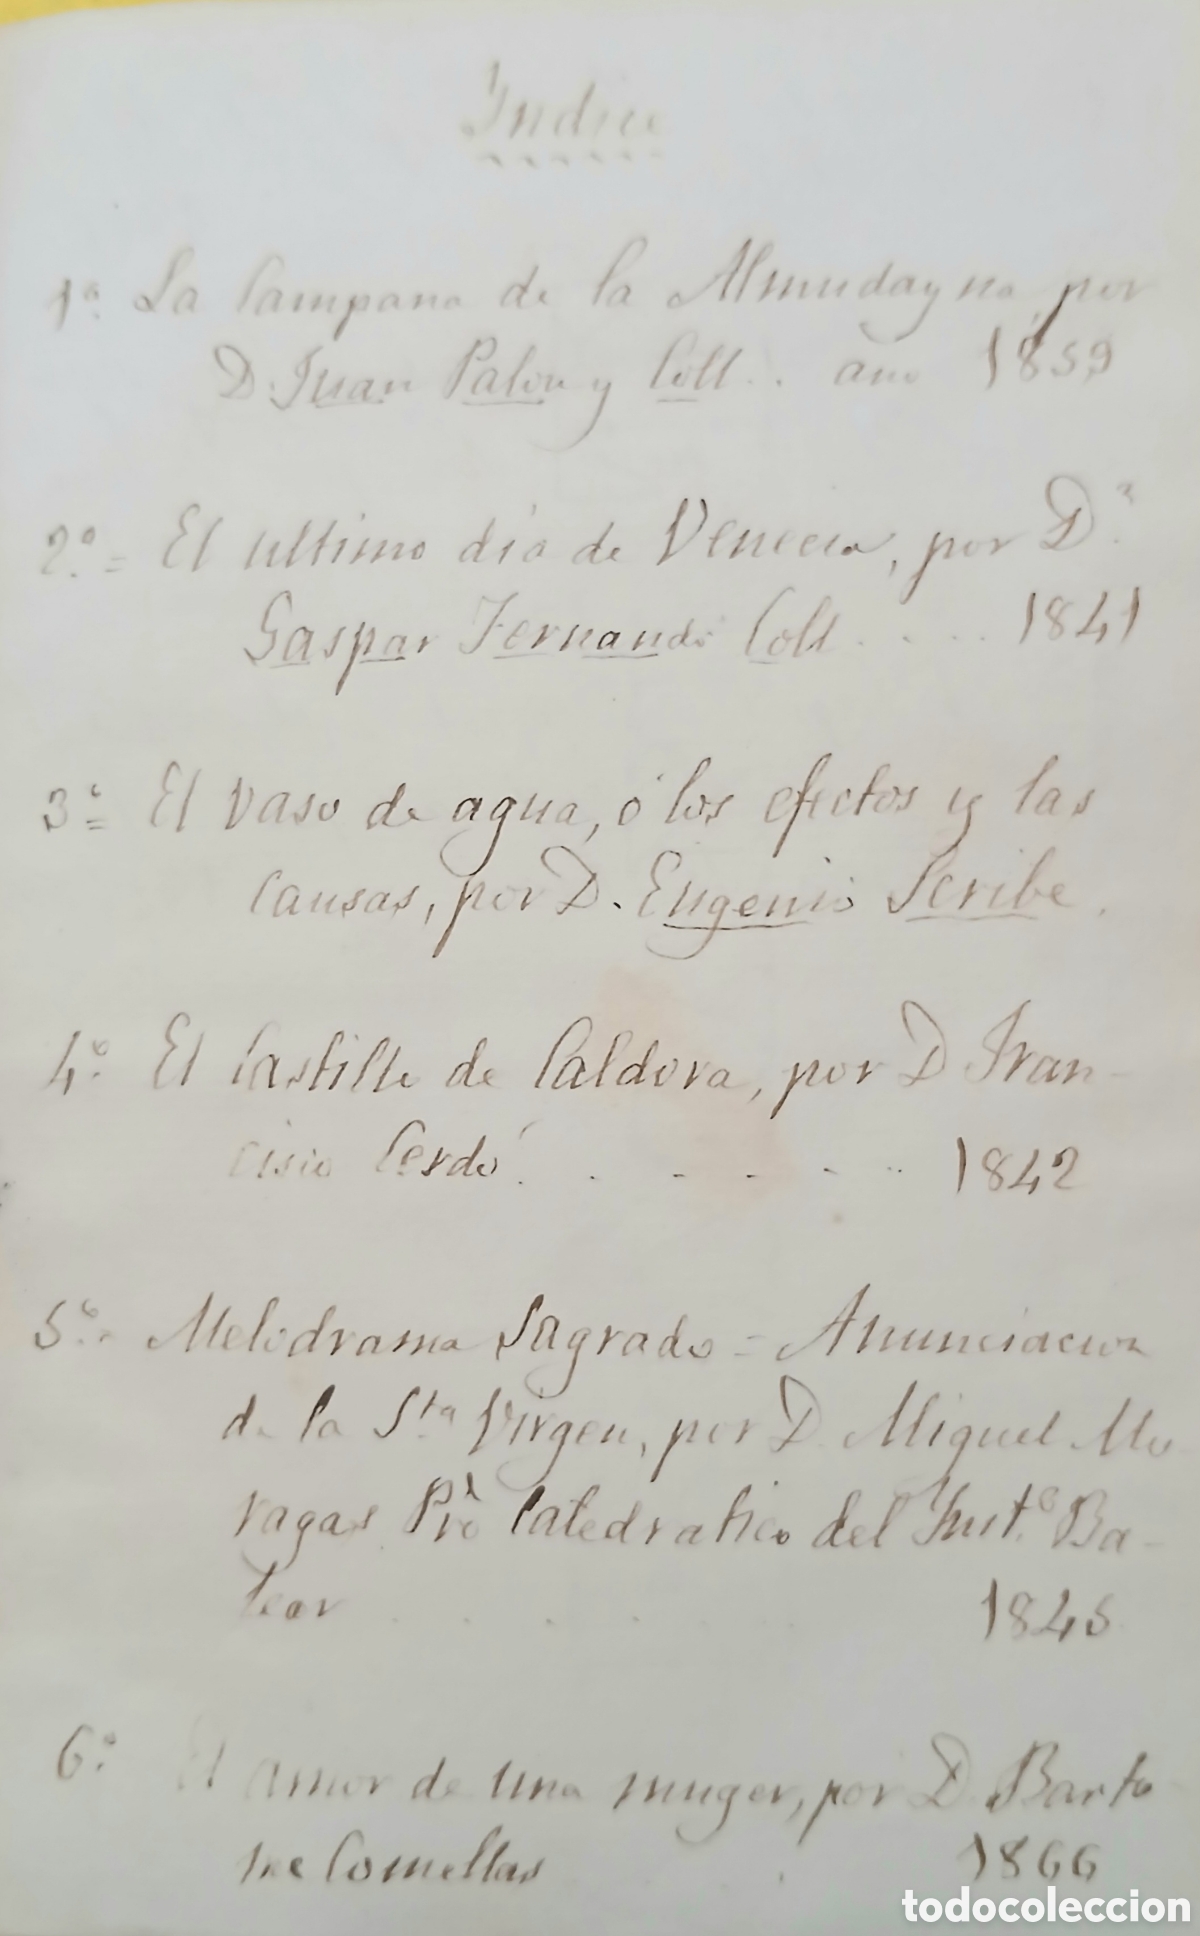 Indice
1ª La Campana de la Almudayna, por
D. Juan Palou y Coll.. año 1859
2º = El ultimo dia de Venecia, por Dn
Gaspar Fernando Coll . . . . 1841
3º = El vaso de agua, ó los efectos y las
causas, por D. Eugenio Scribe.
4º El Castillo de Caldora, por D Fran-
cisco Cerdó . . . . . 1842
5º Melodrama Sagrado = Anunciacion
de la Sta Virgen, por D. Miguel Mo
ragas Pro Catedratico del Insto Ba-
lear . . . . . 1845
6º El amor de una muger, por D. Barto
me Comellas . 1866
todocoleccion